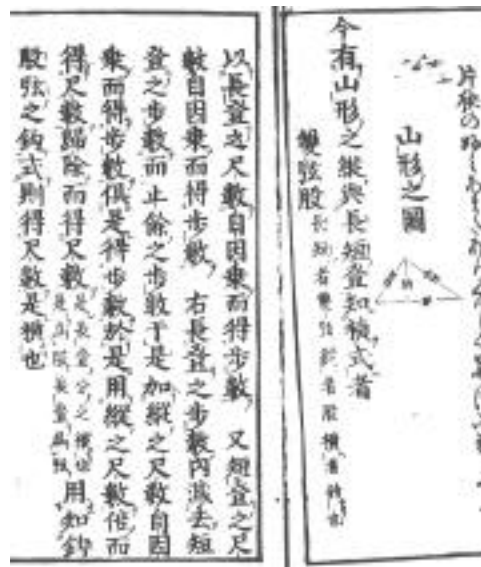 片狭の
山形之圖
今有山形之縱與長短登知横式者
雙弦股 長短者雙弦縱者股横者鈎也
以長登之尺數自因乗而得步數 又短登之尺
數自因乗而得步數 右長登之步數內減去短
登之步數而止餘之步數于是加縱之尺數自因
乗而得步數俱是得步數於是用縱之尺數倍而
得尺數歸除而得尺數 是長登分之横也 是為股長登為弦 用知鈎
股弦之鈎式則得尺數是横也